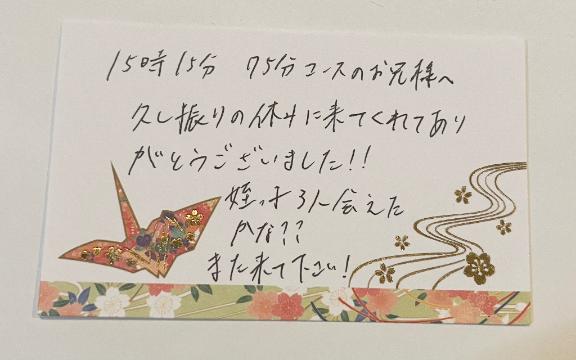 15時15分 75分コースのお兄様へ
久し振りの休みに来てくれてあり
がとうございました!!
姪っ子3人会えた
かな??
また来て下さい!